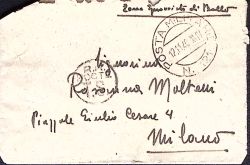 Zona sprovvista di Bolli
POSTA MILITARE
N.
Signorina
Rosanna Molteni
Piazzale Giulio Cesare 4
Milano